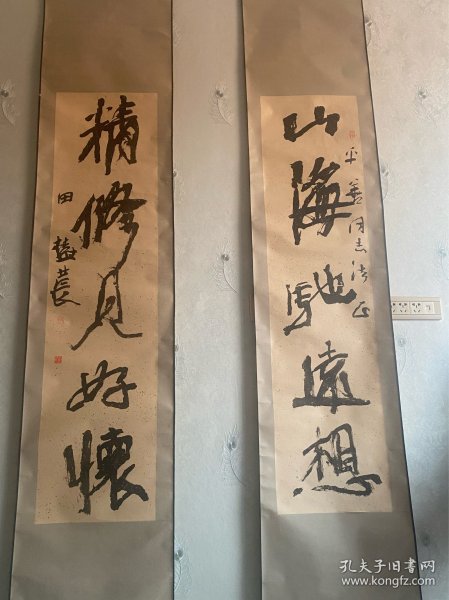 山海馳遠想
平善同志法正
精脩見好懷
田樹萇
孔夫子旧书网
www.kongfz.com